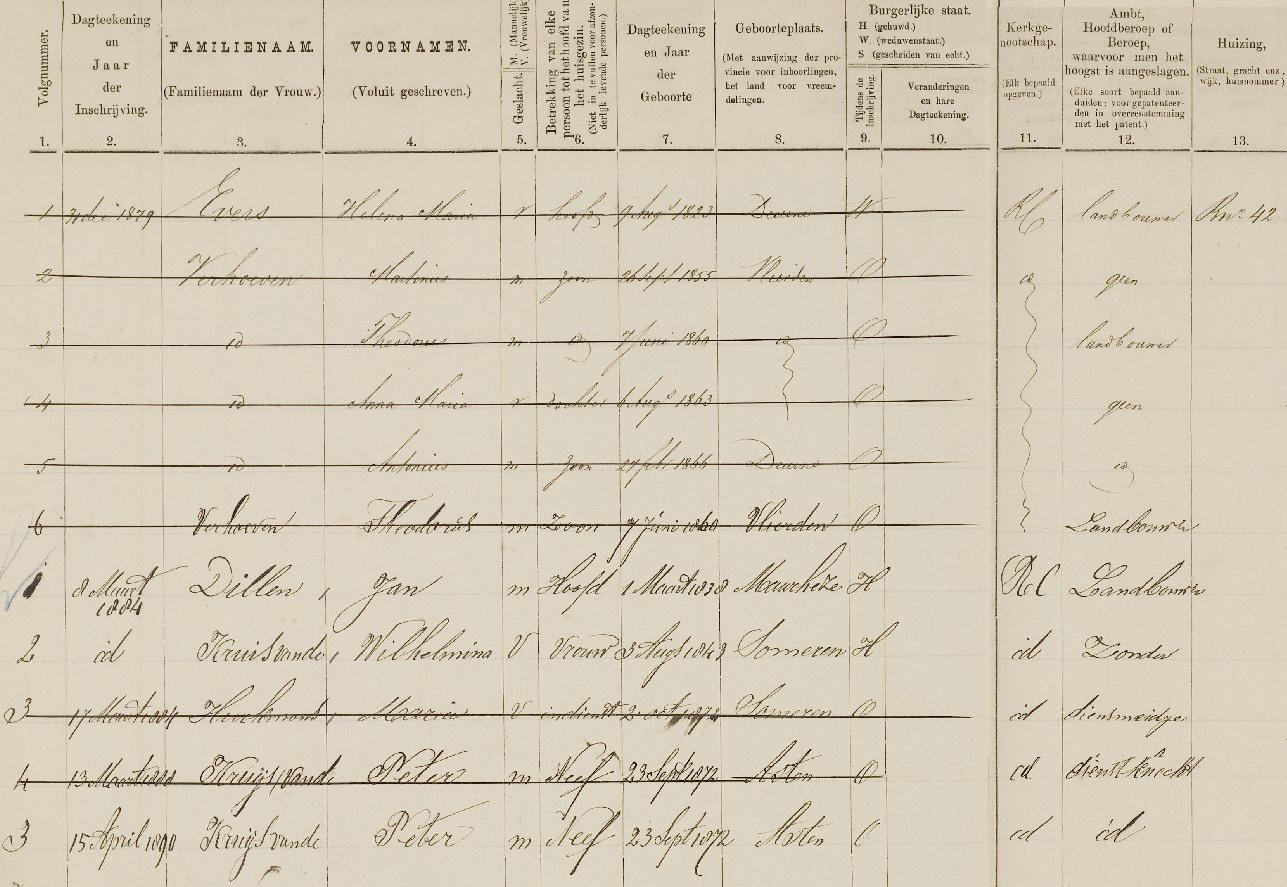 Volgnummer.
Dagteekening
en
Jaar
der
Inschrijving.
FAMILIENAAM.
(Familienaam der Vrouw.)
VOORNAMEN.
(Voluit geschreven.)
Geslacht. M. (Mannelijk) V. (Vrouwelijk)
Betrekking van elke
persoon tot het hoofd van
het huisgezin.
(Niet in te vullen voor afzon-
derlijk levende personen.)
Dagteekening
en Jaar
der
Geboorte
Geboorteplaats.
(Met aanwijzing der pro-
vincie voor inboorlingen,
het land voor vreem-
delingen.
Burgerlijke staat.
H. (gehuwd.)
W. (weduwenstaat.)
S (gescheiden van echt.)
Tijdens de
inschrijving.
Veranderingen
en hare
Dagteekening.
Kerkge-
nootschap.
(Elk bepaald
opgeven.)
Ambt,
Hoofdberoep of
Beroep,
waarvoor men het
hoogst is aangeslagen.
(Elke soort bepaald aan-
duiden; voor gepatenteer-
den in overeenstemming
met het patent.)
Huizing,
(Straat, gracht enz.,
wijk, huisnommer)
1. 2. 3. 4. 5. 6. 7. 8. 9. 10. 11. 12. 13.
1 31 dec 1879 Evers Helena Maria v hoofd 9 Augs 1823 Deurne W RC landbouwer 42
2 Verhoeven Martinus m zoon 26 Sept 1855 Vlierden O id geen
3 id Theodorus m id 7 Juni 1860 id O landbouwer
4 id Anna Maria v dochter 6 Augs 1863 O geen
5 id Antonius m zoon 27 feb 1866 Deurne O id
6 Verhoeven Theodorus m Zoon 7 Juni 1860 Vlierden O Landbouwer
1 8 Maart 1884 Dillen, Jan m Hoofd 1 Maart 1838 Maarheze H RC Landbouwer
2 id Kruis vande, Wilhelmina V Vrouw 3 Augs 1843 Someren H id Zonder
3 17 Maart 1884 Maria V indienst 2 oct Someren O id dienstmeidge
4 13 Maart Kruijs, vande Peter m Neef 23 Sept 1872 Asten O id dienstknecht
3 15 April 1890 Kruijs vande Peter m Neef 23 Sept 1872 Asten O id id